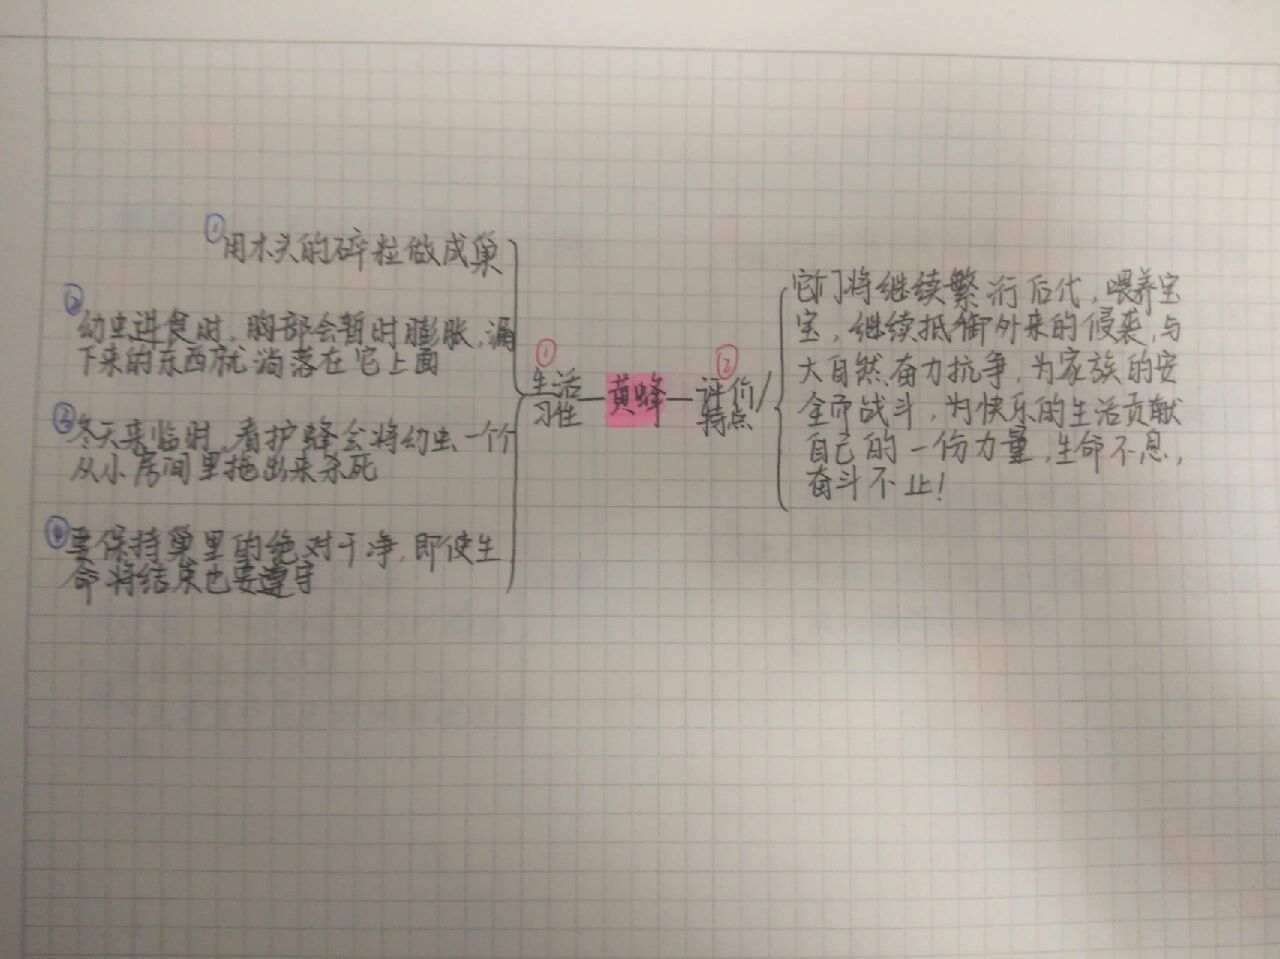 ①用木头的碎粒做成巢
②幼虫进食时，胸部会暂时膨胀，漏
下来的东西就淌落在它上面
③冬天来临时，看护蜂会将幼虫一个个
从小房间里拖出来杀死
④要保持巢里的绝对干净，即使生
命将结束也要遵守
①
生活
习性
黄蜂
②
评价
特点
它们将继续繁衍后代，喂养宝
宝，继续抵御外来的侵袭，与
大自然奋力抗争，为家族的安
全而战斗，为快乐的生活贡献
自己的一份力量，生命不息，
奋斗不止！